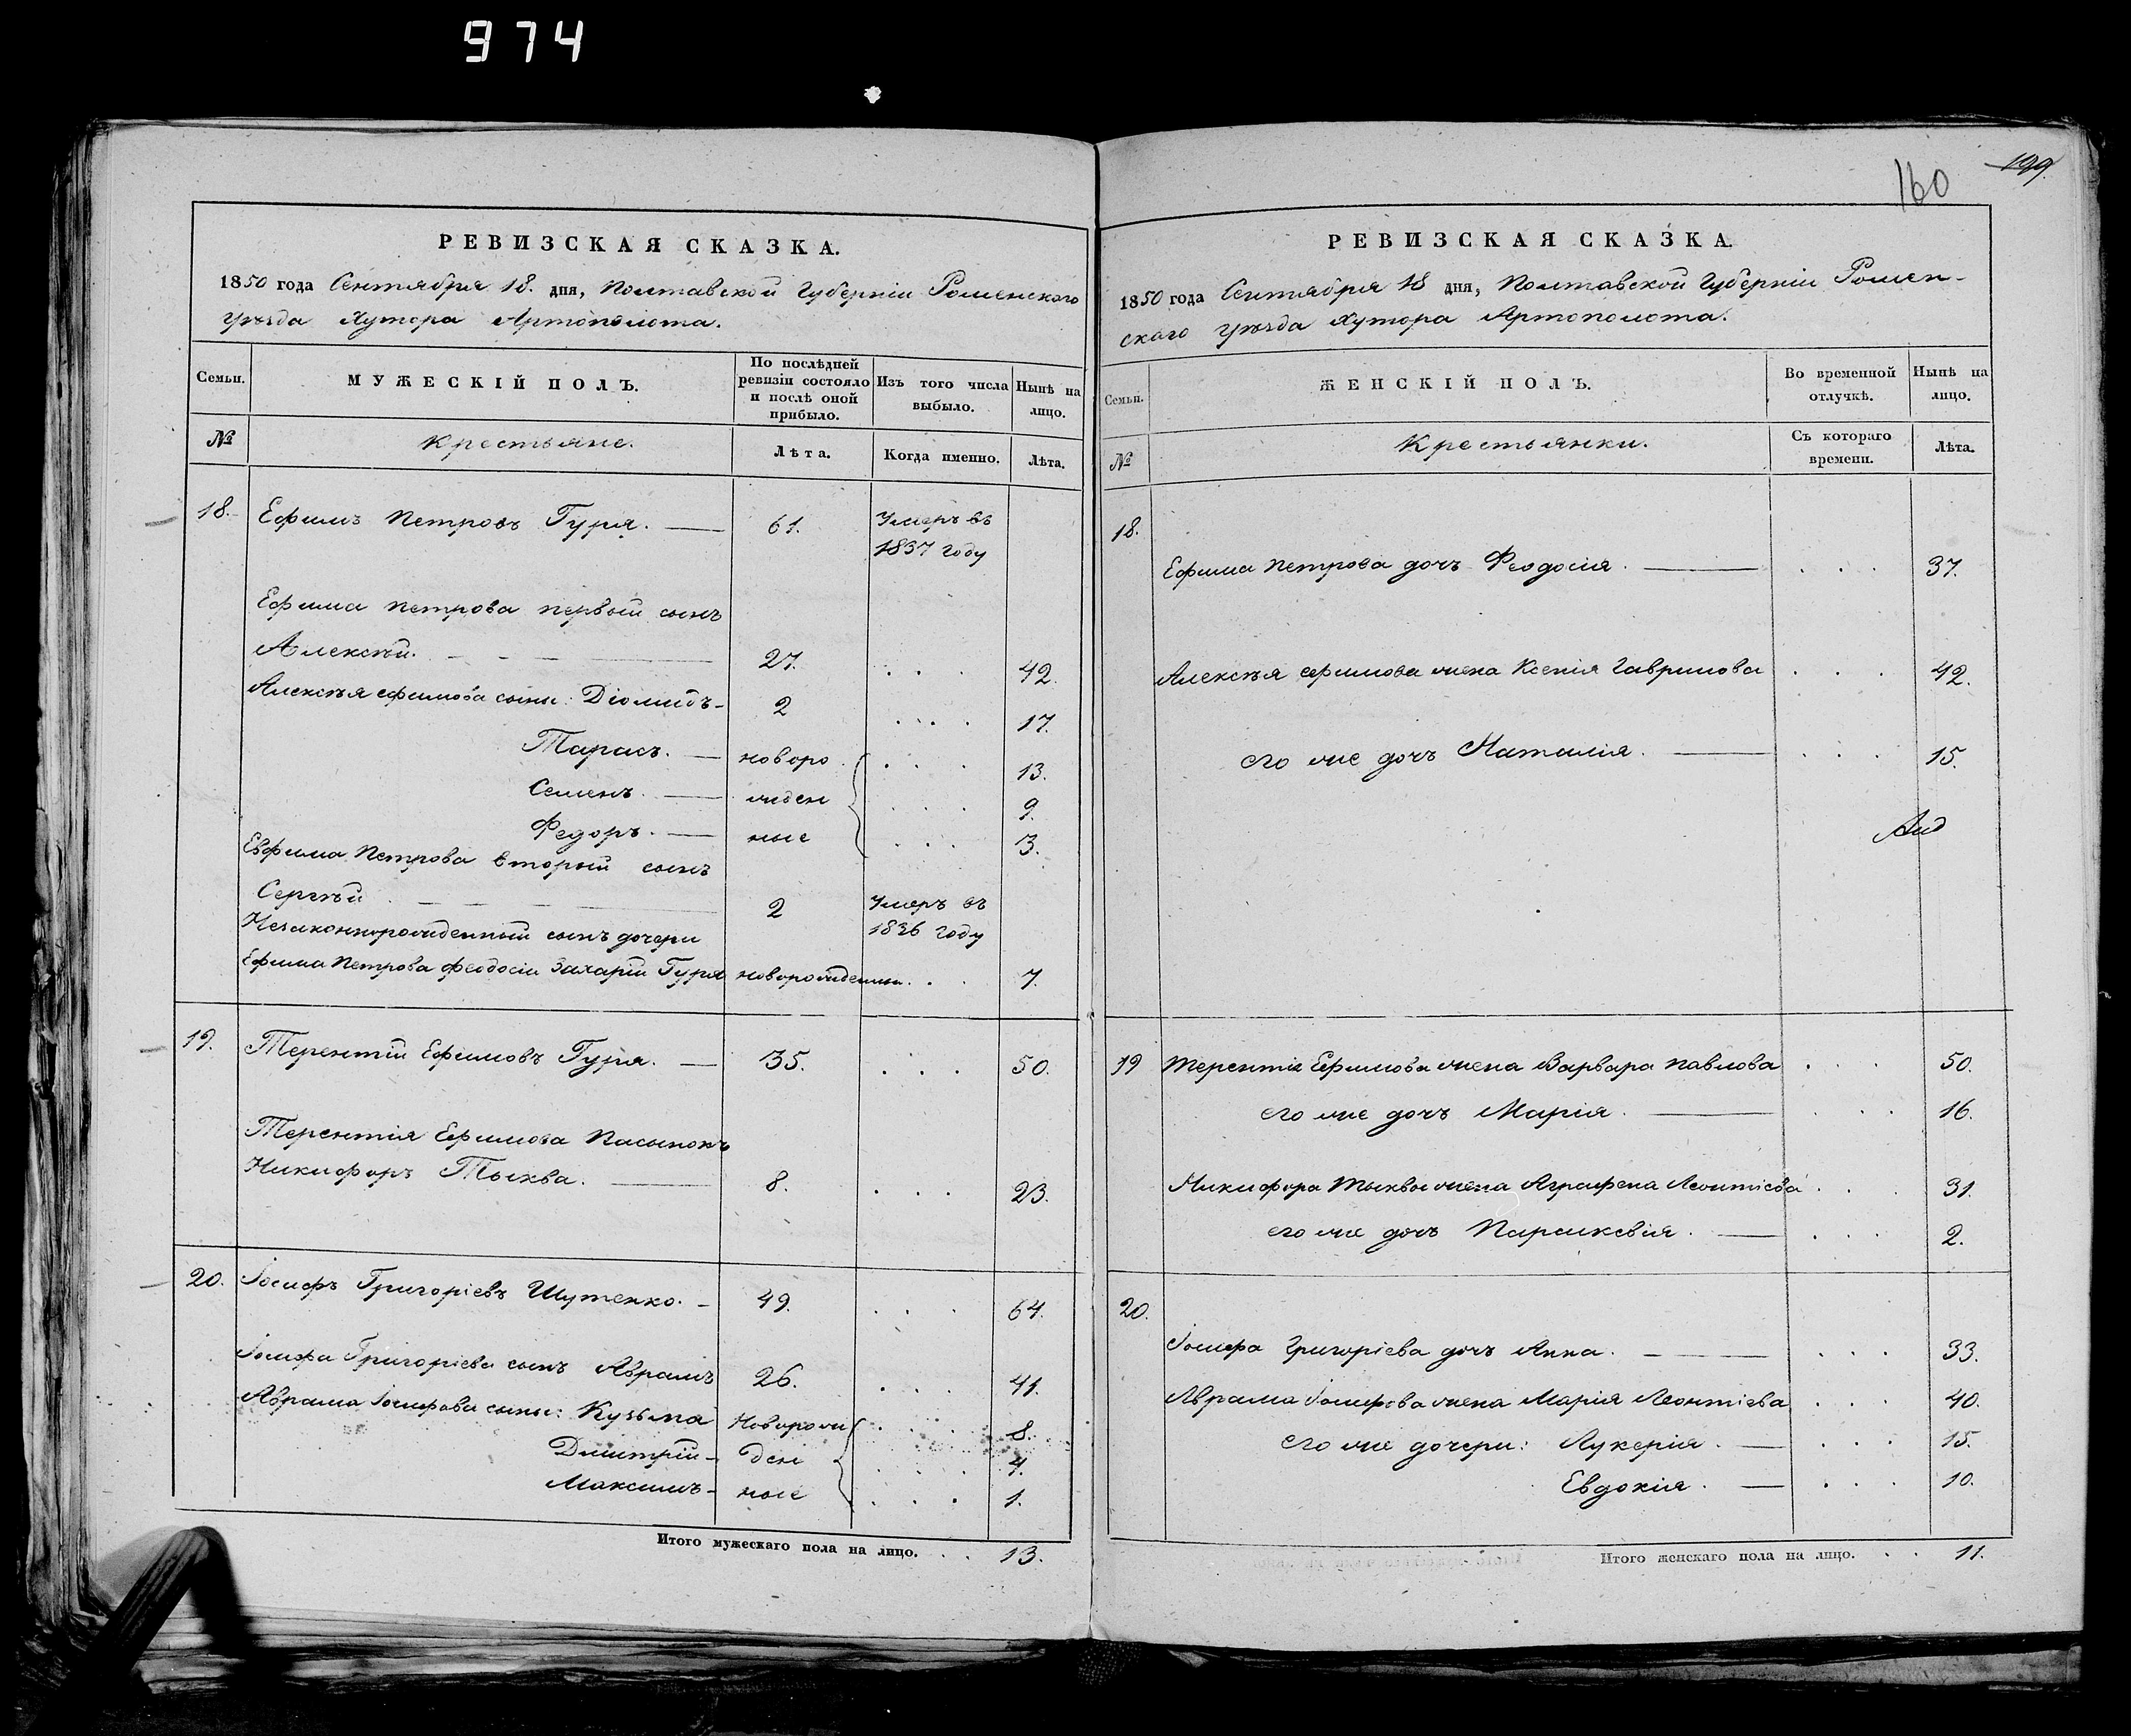 974
РЕВИЗСКАЯ СКАЗКА.
1850 года Сентября 18. дня, Полтавской Губерніи Роменского
Уѣзда Хутора Артополота.
Семьи.
МУЖЕСКІЙ ПОЛЪ.
По послѣдней ревизіи состояло и послѣ оной прибыло.
Изъ того числа выбыло.
Нынѣ на лицо.
№
Крестьяне.
Лѣта.
Когда именно.
Лѣта.
18. Ефимъ Петровъ Гуря. 61. Умеръ въ
1837 году
Ефима Петрова первый сынъ
Алексѣй. 27. . . . 42.
Алексѣя Ефимова сыны: Діомидъ 2 . . . 17.
Тарасъ. новоро . . . 13.
Семенъ. жден . . . 9.
Федоръ. ные . . . 3.
Евфима Петрова вторый сынъ
Сергѣй 2 Умеръ въ
1836 году
Незаконнорожденный сынъ дочери
Ефима Петрова Феодосіи Захарій Гуря новорожденны. . . 7.
19. Терентій Ефимовъ Гуря. 35. . . . 50.
Терентія Ефимова Пасынокъ
Никифоръ Тыква. 8. . . . 23.
20. Іосифъ Григоріевъ Шутенко. 49. . . . 64.
Іосифа Григоріева сынъ Аврамъ 26. . . . 41.
Аврама Іосифова сыны: Кузьма Новорож . . . 8.
Дмитрій ден . . . 4.
Максимъ ные . . . 1.
Итого мужескаго пола на лицо. . . 13.
160
199.
РЕВИЗСКАЯ СКАЗКА.
1850 года Сентября 18 дня, Полтавской Губерніи Ромен-
скаго Уѣзда Хутора Артополота.
Семьи.
ЖЕНСКІЙ ПОЛЪ.
Во временной отлучкѣ.
Нынѣ на лицо.
№
Крестьянки.
Съ котораго времени.
Лѣта.
18.
Ефима Петрова дочь Феодосія. . . . 37.
Алексѣя Ефимова жена Ксенія Гаврилова . . . 42.
его же дочь Наталія. . . . 15.
19 Терентія Ефимова жена Варвара Павлова . . . 50.
его же дочь Марія. . . . 16.
Никифора Тыквы жена Аграфена Леонтіева . . . 31.
его же дочь Параскевія. . . . 2.
20.
Іосифа Григоріева дочь Анна. . . . 33.
Аврама Іосифова жена Марія Леонтіева . . . 40.
его же дочери: Лукерія. . . . 15.
Евдокія. . . . 10.
Итого женскаго пола на лицо. . . 11.